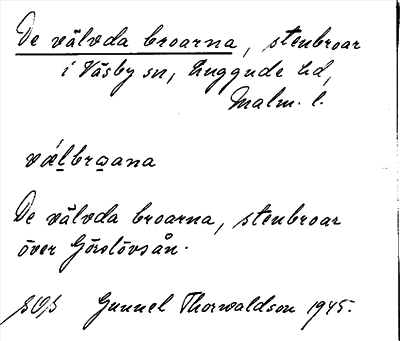 De välvda broarna, stenbroar
i Väsby sn, Luggude hd,
Malm. l.
væ̀l̲bro̲ana
De välvda broarna, stenbroar
över Görslövsån.
SOS Gunnel Thorwaldson 1945.